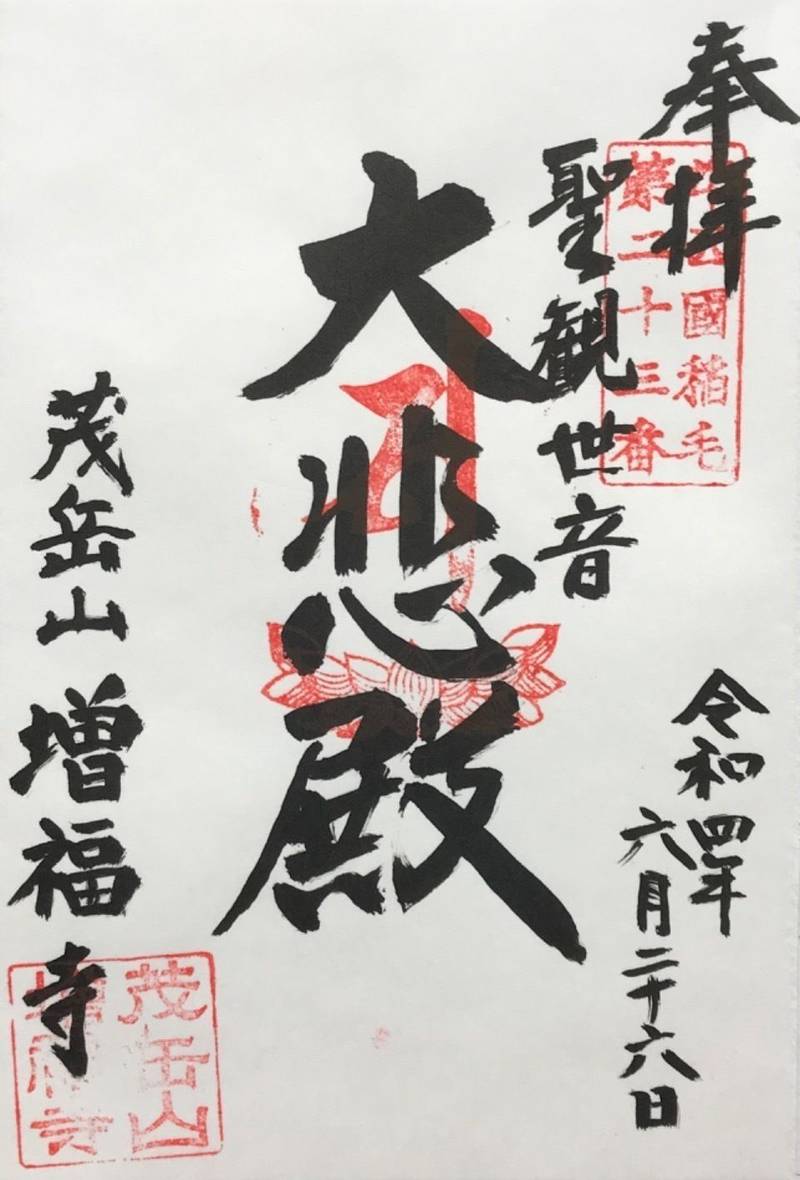 奉拝
國稲毛
第二十三番
聖観世音
大悲殿
令和四年
六月二十六日
茂岳山 増福寺
茂岳山
増福寺